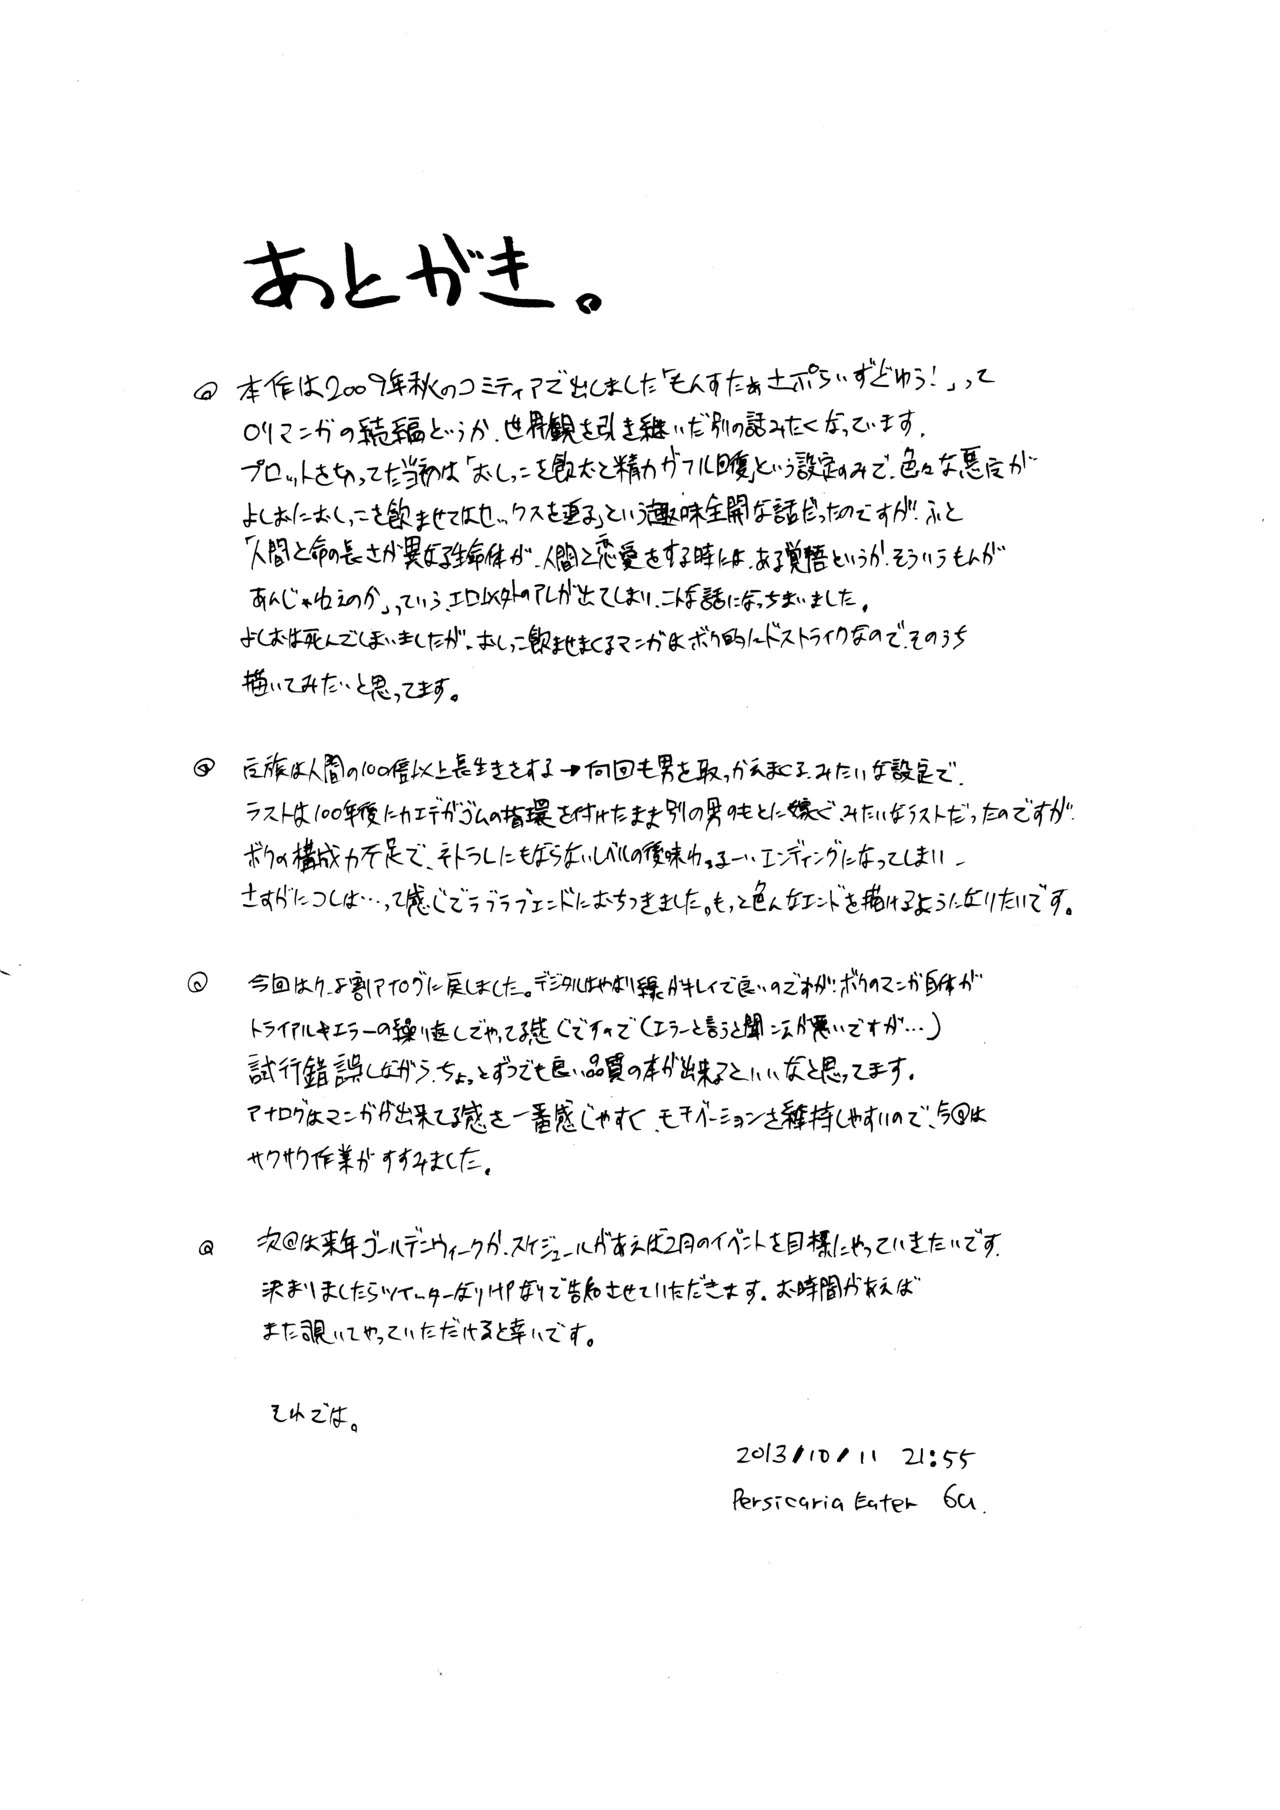 あとがき。
本作は2009年秋のコミティアで出しました「もんすたぁさぷらいずどゆう!」って
マンガの続編というか、世界観を引き継いだ別の話みたくなっています。
プロットを切ってた当初は「おしっこを飲むと精力がフル回復」という設定のみで、色々な悪魔が
よしおにおしっこを飲ませてはセックスを迫る」という趣味全開な話だったのですが、ふと
「人間と命の長さが異なる生命体が、人間と恋愛をする時には、ある覚悟というか、そういうもんが
あんじゃねえのか」っていう、エロ以外のアレが出てしまい、こんな話になっちまいました。
よしおは死んでしまいましたが、おしっこ飲ませまくるマンガはボク的にドストライクなので、そのうち
描いてみたいと思ってます。
族は人間の100倍以上長生きをする→何回も男を取っかえまくる、みたいな設定で、
ラストは100年後にカエデがゴムの指環を付けたまま別の男のもとに嫁ぐ、みたいなラストだったのですが、
ボクの構成力不足で、ネトラレにもならないレベルの後味わるーいエンディングになってしまい
さすがにコレは…って感じでラブラブエンドにおちつきました。もっと色んなエンドを描けるようになりたいです。
今回は9.5割アナログに戻しました。デジタルはやはり線がキレイで良いのですが、ボクのマンガ自体が
トライアル&エラーの繰り返しでやってる感じですので(エラーと言うと聞こえが悪いですが…)
試行錯誤しながら、ちょっとずつでも良い品質の本が出来るといいなと思ってます。
アナログはマンガが出来てる感を一番感じやすく、モチベーションを維持しやすいので、今@は
サクサク作業がすすみました。
次@は来年ゴールデンウィークか、スケジュールがあえば2月のイベントを目標にやっていきたいです。
決まりましたらツイッターなりHPなりで告知させていただきます。お時間があえば
また覗いてやっていただけると幸いです。
それでは。
2013/10/11 21:55
Persicaria Eater 6u.